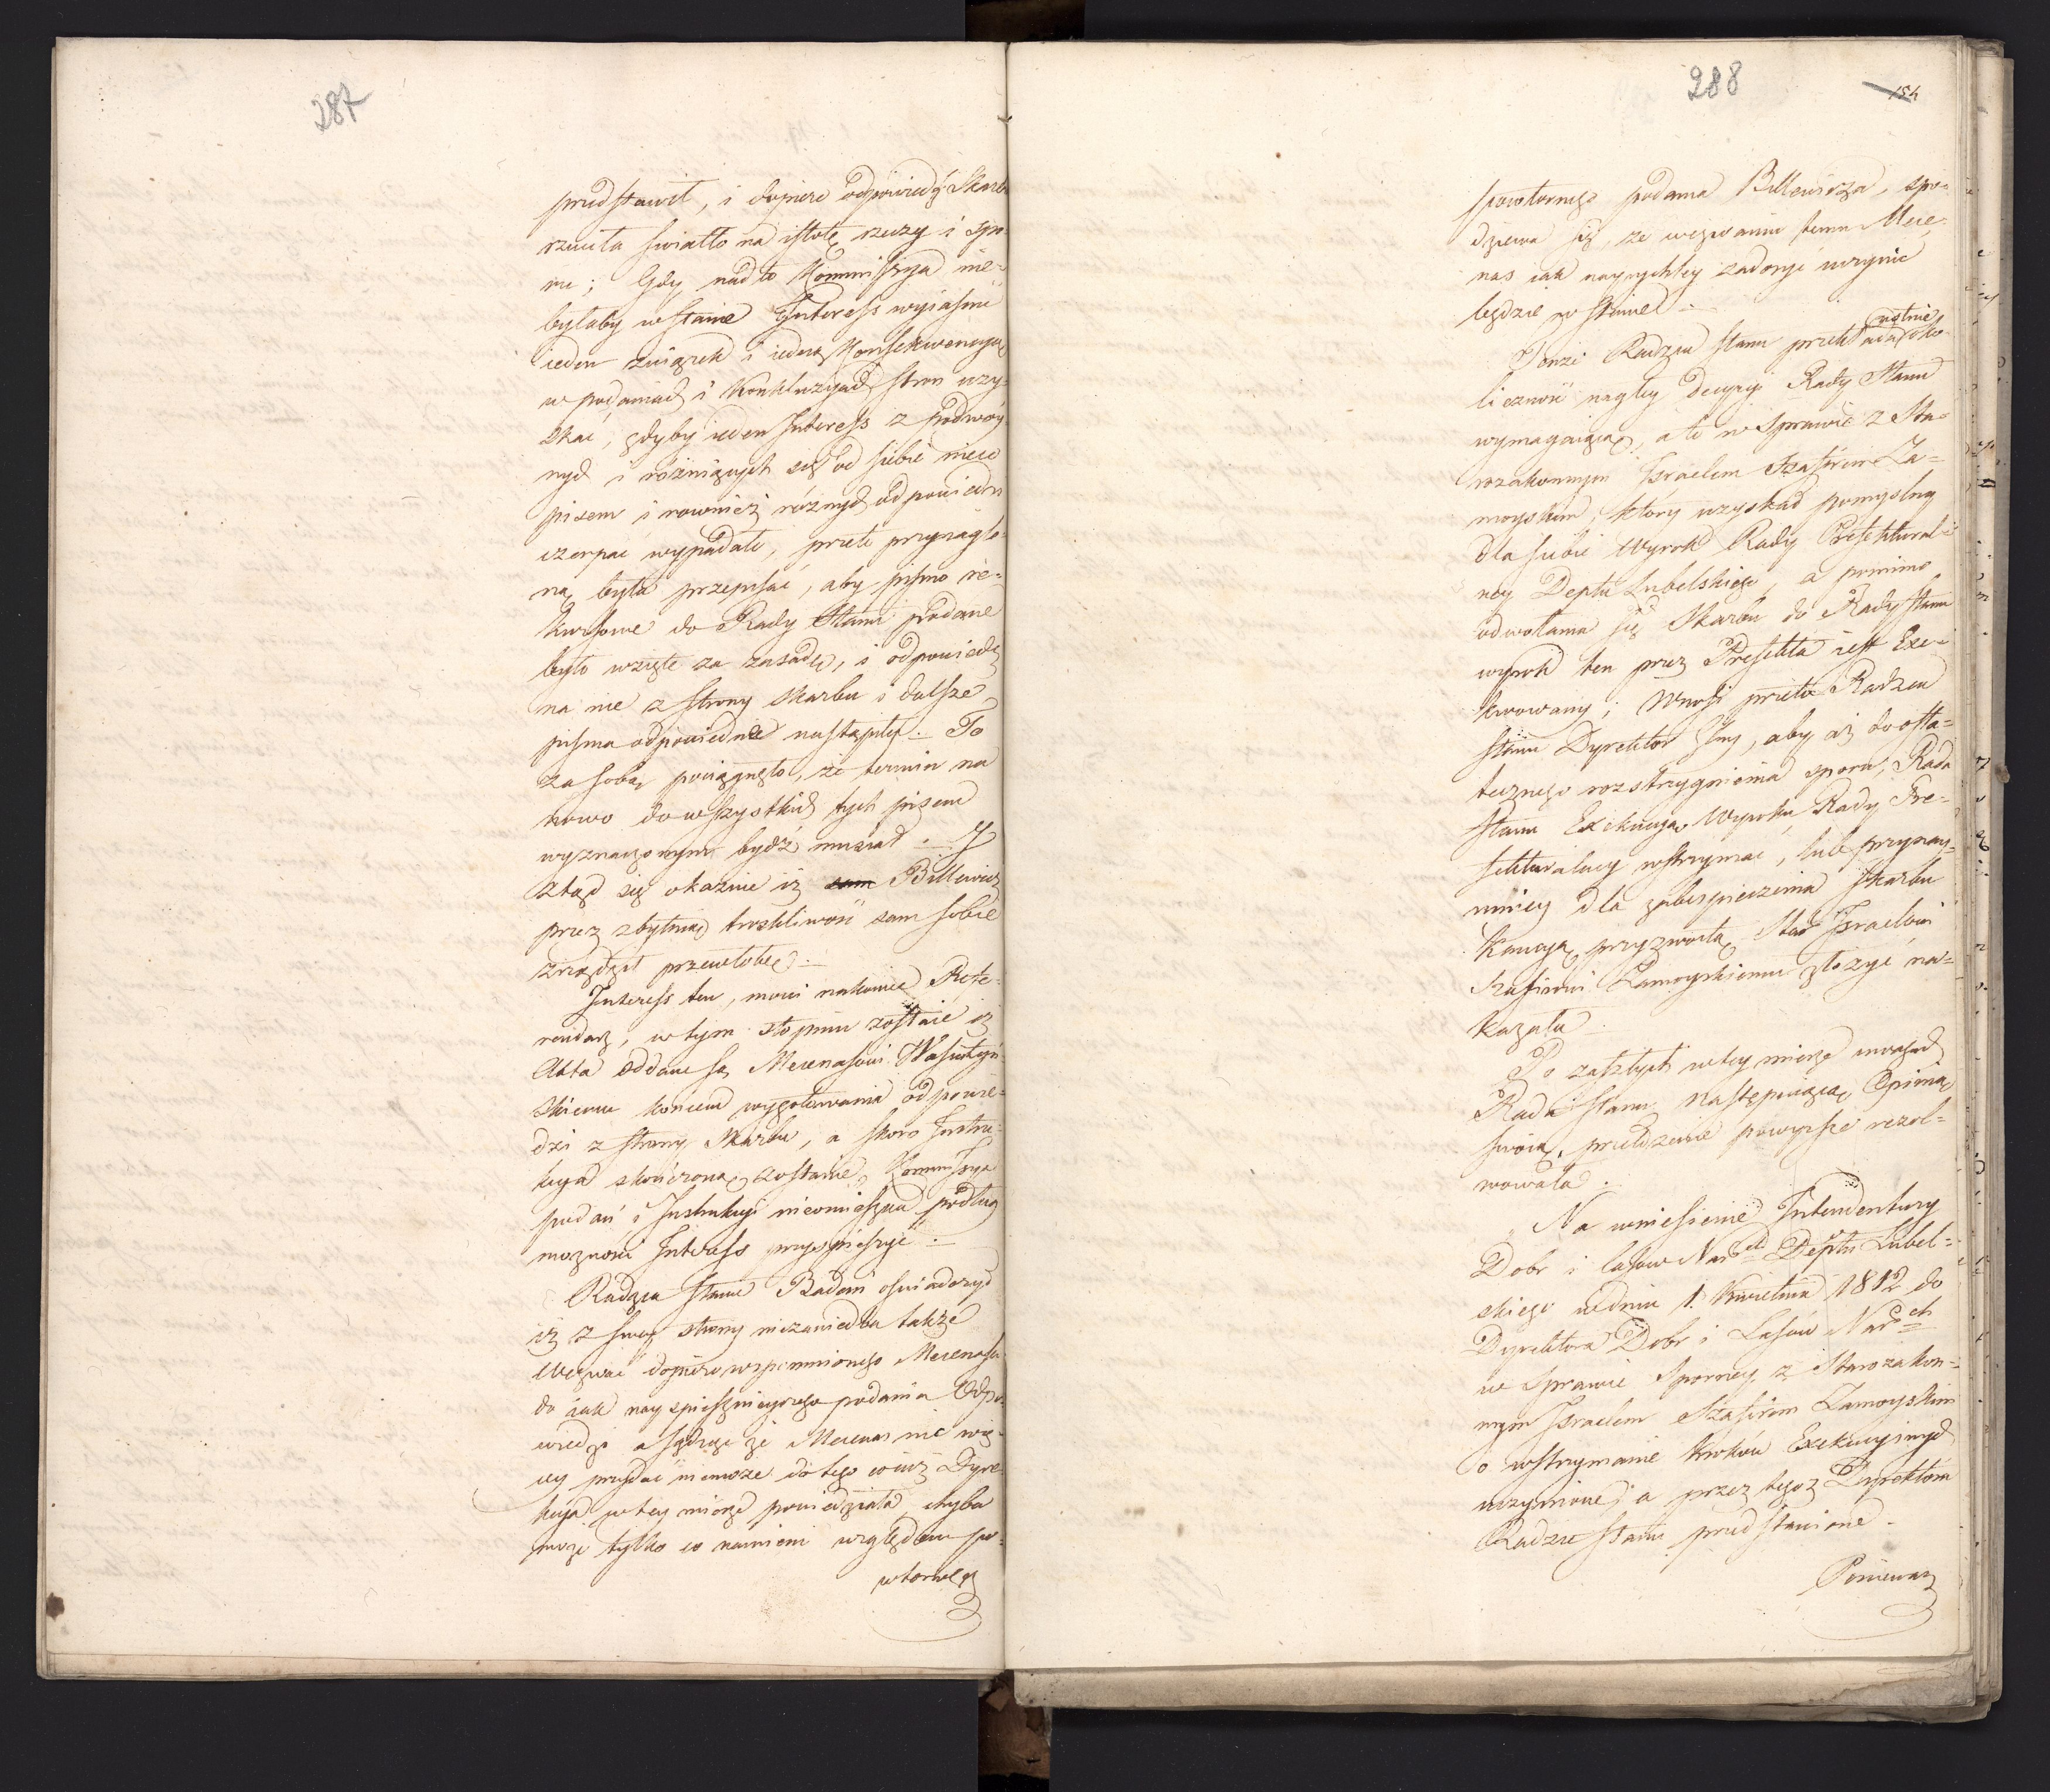 287
przedstawił, i dopiero odpowiedź Skarb
rzuciła swiatło na istotę rzeczy i spo-
ru; Gdy nadto Kommissya nie-
byłaby w stanie Interess wyiaśnić
ieden związek i iedną Konsekwencyą
w podaniach i Konkluzyach stron uzy-
skać, gdyby ieden Interess z podwóy-
nych i rożniących się od siebie nieco
pisem i rownież różnych odpowiedzi
czerpać wypadało, przeto przynaglo-
ną była przepisać, aby pismo re-
kursowe do Rady Stanu podane
było wzięte za zasadę, i odpowiedź
na nie z strony Skarbu i dalsze
pisma odpowiednie nastąpiły. To
za sobą pociągnęło, że termin na
nowo do wszystkich tych pisem
wyznaczonym bydź musiał. Y
ztąd się okazuie iż sam Billewicz
przez zbytnią troskliwość sam sobie
zrządził przewłokę.
Interess ten, mowi nakoniec Refe-
rendarz, w tym stopniu zostaie iż
Akta oddane są Mecenasowi Wasiutyń-
skiemu koncem wygotowania odpowie-
dzi z strony Skarbu, a skoro Instru-
kcya skończoną zostanie, Kommissya
podań i Instrukcyi nieomieszka podług
możności Interess przyspieszyć.
Radzca Stanu Badeni oswiadczył
iż z swey strony niezaniedba także
wezwać dopiero wspomnionego Mecenasa
do iak nayspiesznieyszego podania Odpo-
wiedzi a sądzi że Mecenas nic wię-
cy przydać niemoże do tego co iuż Dyre-
kcya w tey mierze powiedziała, chyba
może tylko co namieni względem po-
wtornego
288
154
powtornego podania Billewicza, spo-
dziewa się, że wezwaniu temu Mece-
nas iak nayrychley zadosyć uczynić
będzie w stanie.
Tenże Radzca Stanu przekłada ustnie oko-
liczność nagłey decyzyi Rady Stanu
wymagaiącą, a to w Sprawie z Sta-
rozakonnym Israelem Szafirem Za-
moyskim, ktory uzyskał pomyslny
dla siebie Wyrok Rady Prefektural-
ney Deptu Lubelskiego, a pomimo
odwołania się Skarbu do Rady Stanu
wyrok ten przez Prefekta iest Exe-
kwowany; Wnosi przeto Radzca
Stanu Dyrektor Jlny, aby aż do osta-
tecznego rozstrzygnienia sporu, Rada
Stanu Exekucyą Wyroku Rady Pre-
fekturalney wstrzymać, lub przynay-
mniey dla zabespieczenia Skarbu
Kaucyą przyzwoitą Staro Israelowi
Szafirowi Zamoyskiemu złożyć na-
kazała.
Po zaszłych w tey mierze uwagach
Rada Stanu następuiącą Opinią
swoią, przełożenie powyższe rezol-
wowała.
Na wniesienie Intendentury
Dobr i lasow Narch Deptu Lubel-
skiego w dniu 1. Kwietnia 1812 do
Dyrektora Dobr i Lasów Narch
w Sprawie Sporney z Starozakon-
nym Israelem Szafirem Zamoyskim
o wstrzymanie kroków Exekucyinych
uczynione; a przez tegoż Dyrektora
Radzie Stanu przedstawione.
Ponieważ